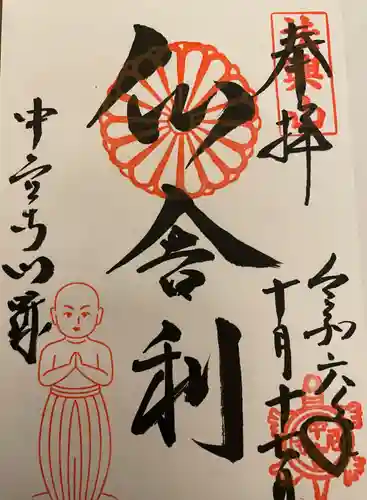 奉拝
令和六年
十月十七日
仏舎利
中宮寺門跡